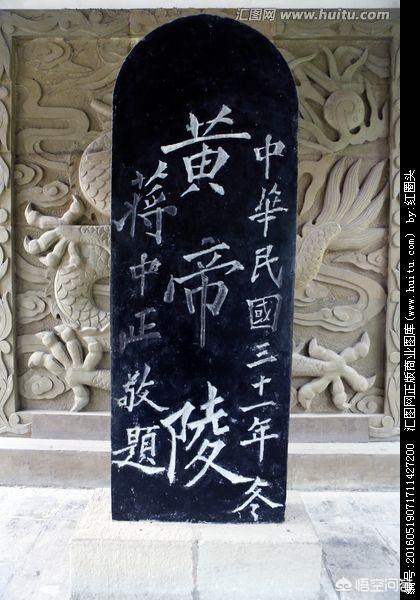 汇图网 http://www.huitu.com
中華民國三十一年冬
黄帝陵
蒋中正敬題
编号:20160519071711427200 汇图网正版商业图库(www.huitu.com) by:红圈头
悟空问答